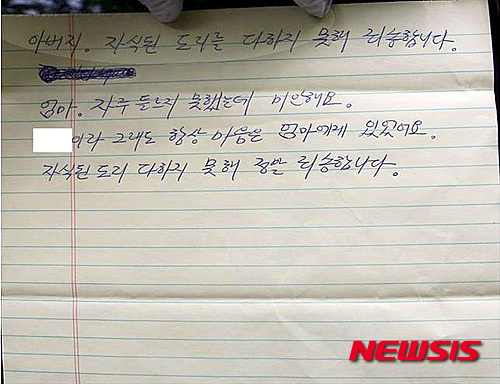 아버지. 자식된 도리를 다하지 못해 죄송합니다.
엄마. 자주 들르지 못했는데 미안해요.
이라 그래도 항상 마음은 엄마에게 있었어요.
자식된 도리 다하지 못해 정말 죄송합니다.
NEWSIS